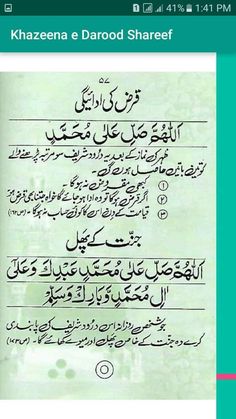 41% 1:41 PM
Khazeena e Darood Shareef
۵۷
قرض کی ادائیگی
اَللّٰهُمَّ صَلِّ عَلٰی مُحَمَّدٍ
ظہر کی نماز کے بعد یہ درود شریف سو مرتبہ پڑھنے والے
کو تین باتیں حاصل ہوں گی۔
۱ کبھی مقروض نہ ہوگا۔
۲ اگر قرض ہوگا تو وہ ادا ہو جائے گا خواہ جتنا بھی قرض ہو
۳ قیامت کے دن اس کا کوئی حساب نہ ہوگا۔
جنّت کے پھل
اَللّٰهُمَّ صَلِّ عَلٰی مُحَمَّدٍ عَبْدِكَ وَعَلٰی
اٰلِ مُحَمَّدٍ وَّبَارِكْ وَسَلِّمْ
جو شخص روزانہ اس درود شریف کی پابندی
کرے وہ جنت کے خاص پھل اور میوے کھائے گا۔